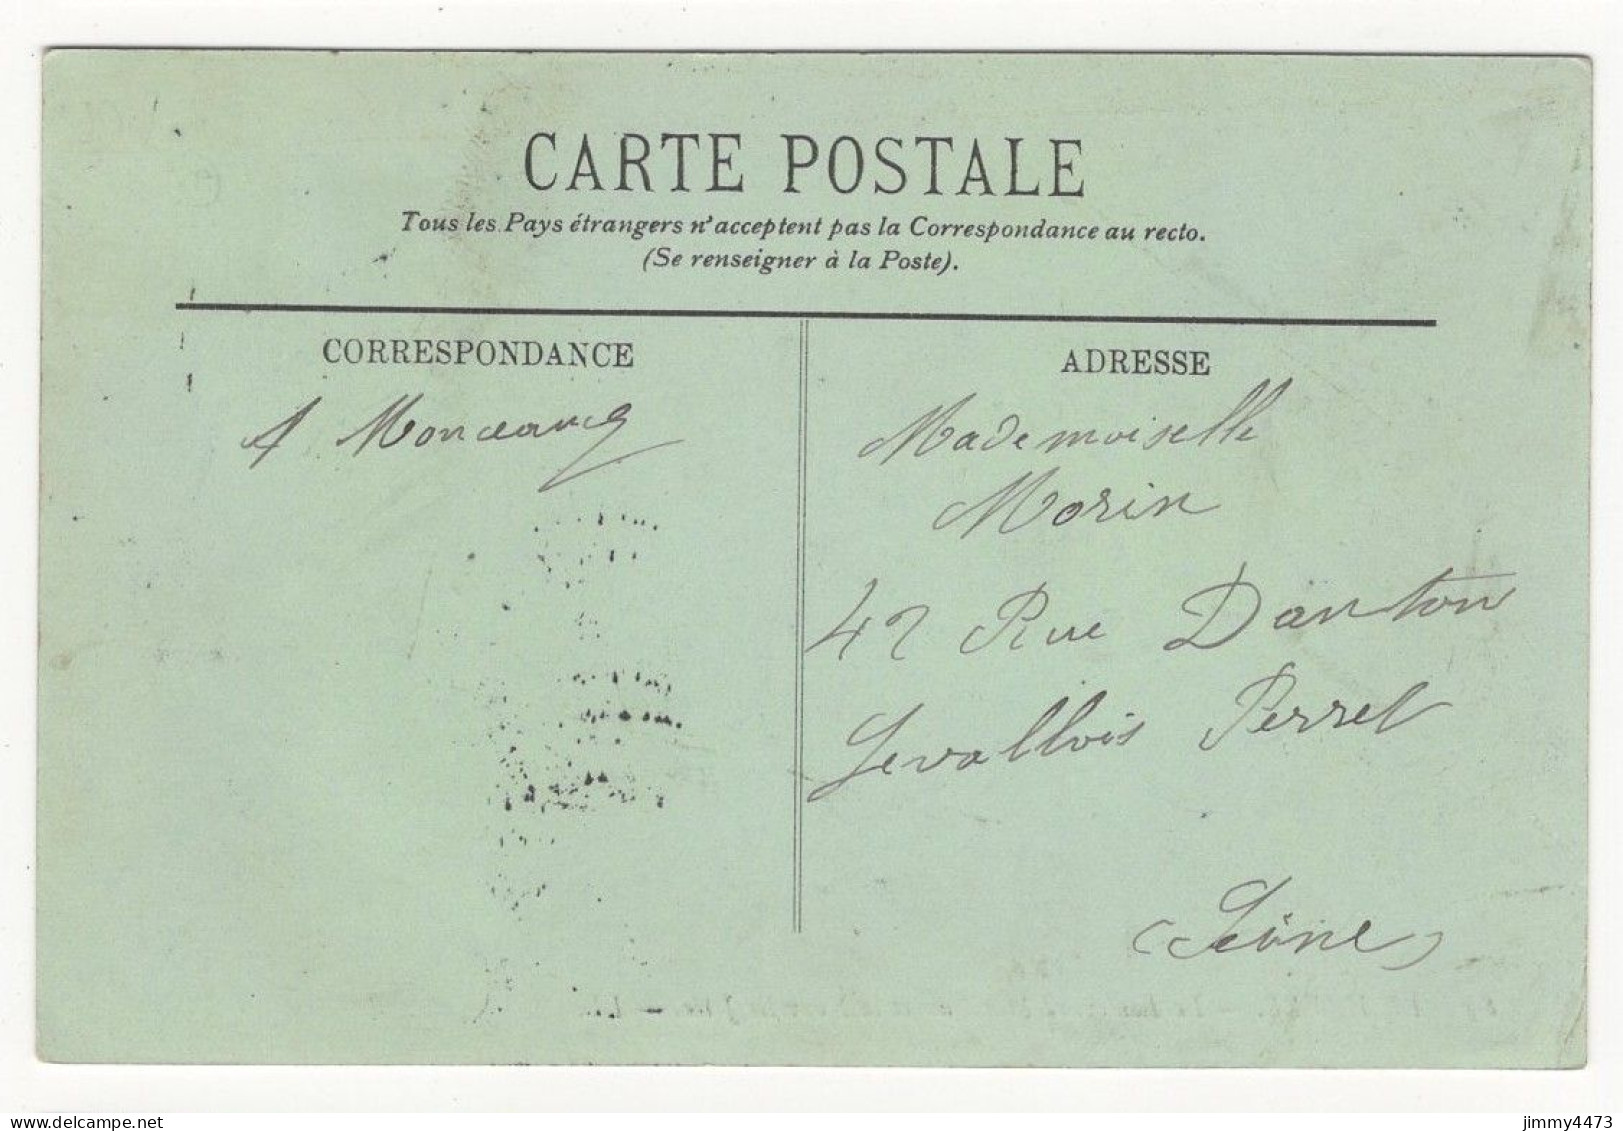 CARTE POSTALE
Tous les Pays étrangers n'acceptent pas la Correspondance au recto.
(Se renseigner à la Poste).
CORRESPONDANCE
ADRESSE
A
Mademoiselle
Morin
42 Rue Danton
Levallois Perret
(Seine)
jimmy4473